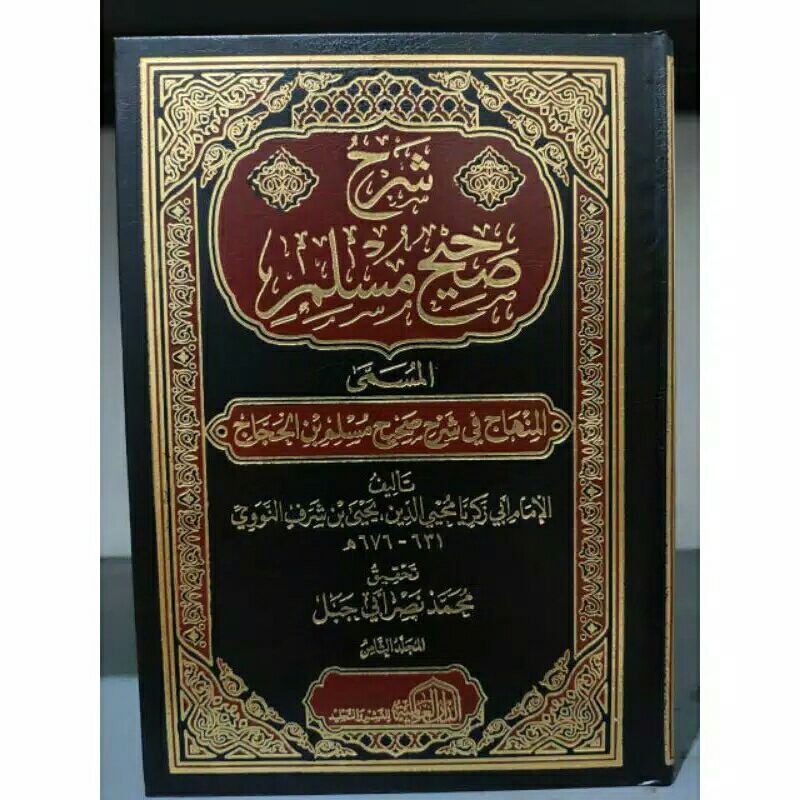 شرح
صحيح مسلم
المسمى
المنهاج في شرح صحيح مسلم بن الحجاج
تأليف
الإمام أبي زكريا محيي الدين، يحيى بن شرف النووي
٦٣١ - ٦٧٦ هـ
تحقيق
محمد نصر أبي جبل
المجلد الثامن
الدار العالمية للنشر والتجليد